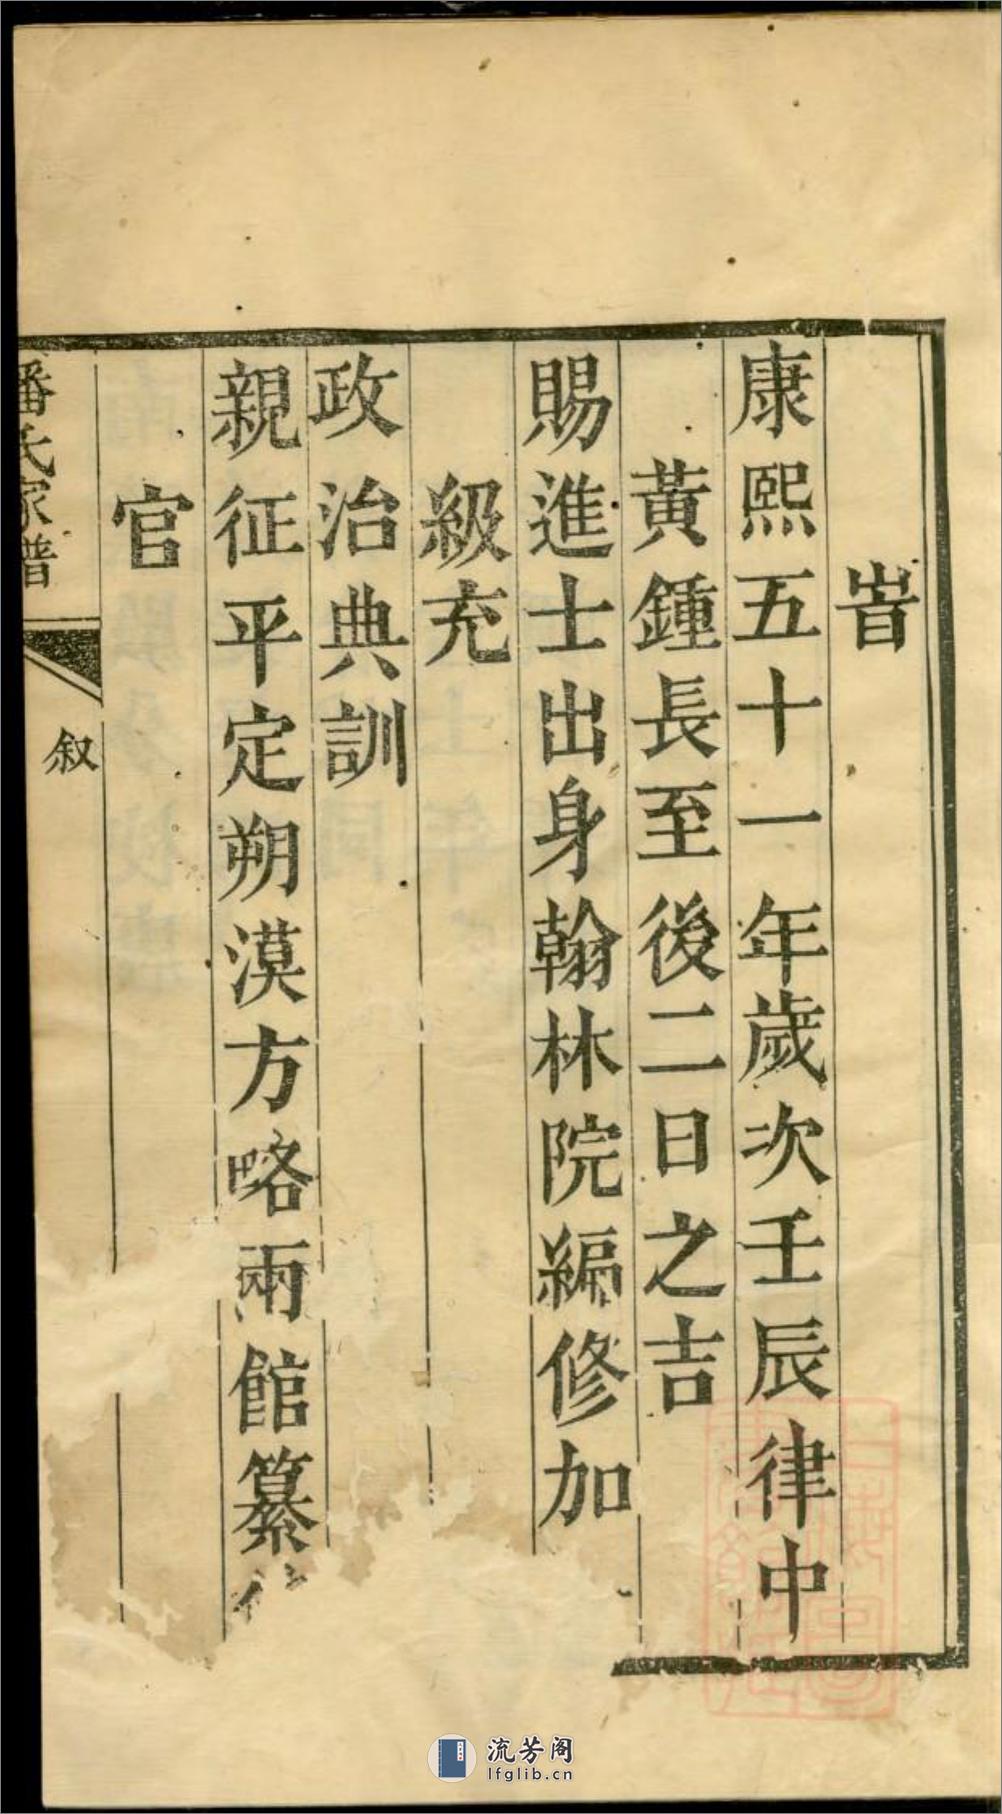 旹
康熙五十一年歲次壬辰律中
黃鍾長至後二日之吉
賜進士出身翰林院編修加
級充
政治典訓
親征平定朔漠方略兩館纂
官
潘氏家譜
叙
流芳阁
lfglib.cn